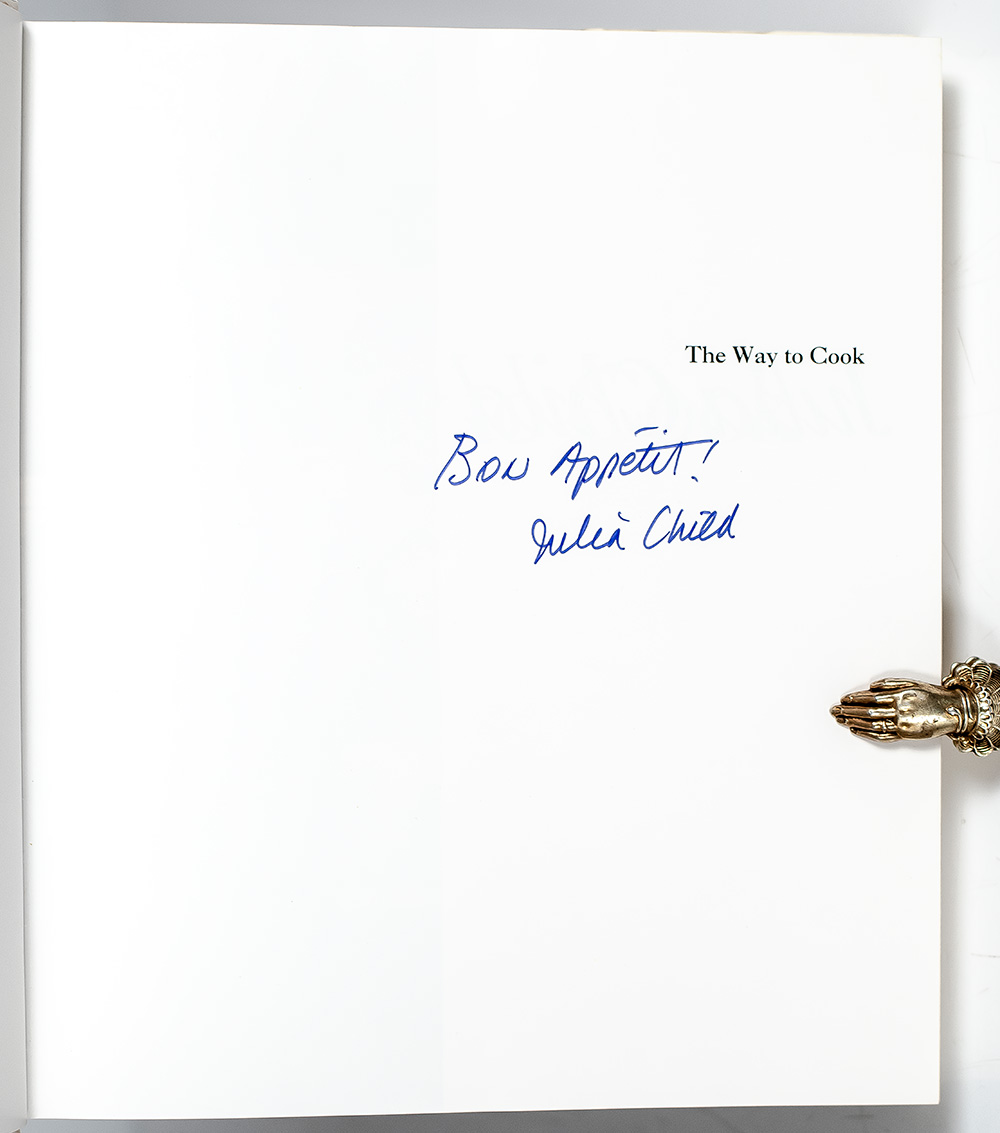 The Way to Cook
Bon Appétit!
Julia Child